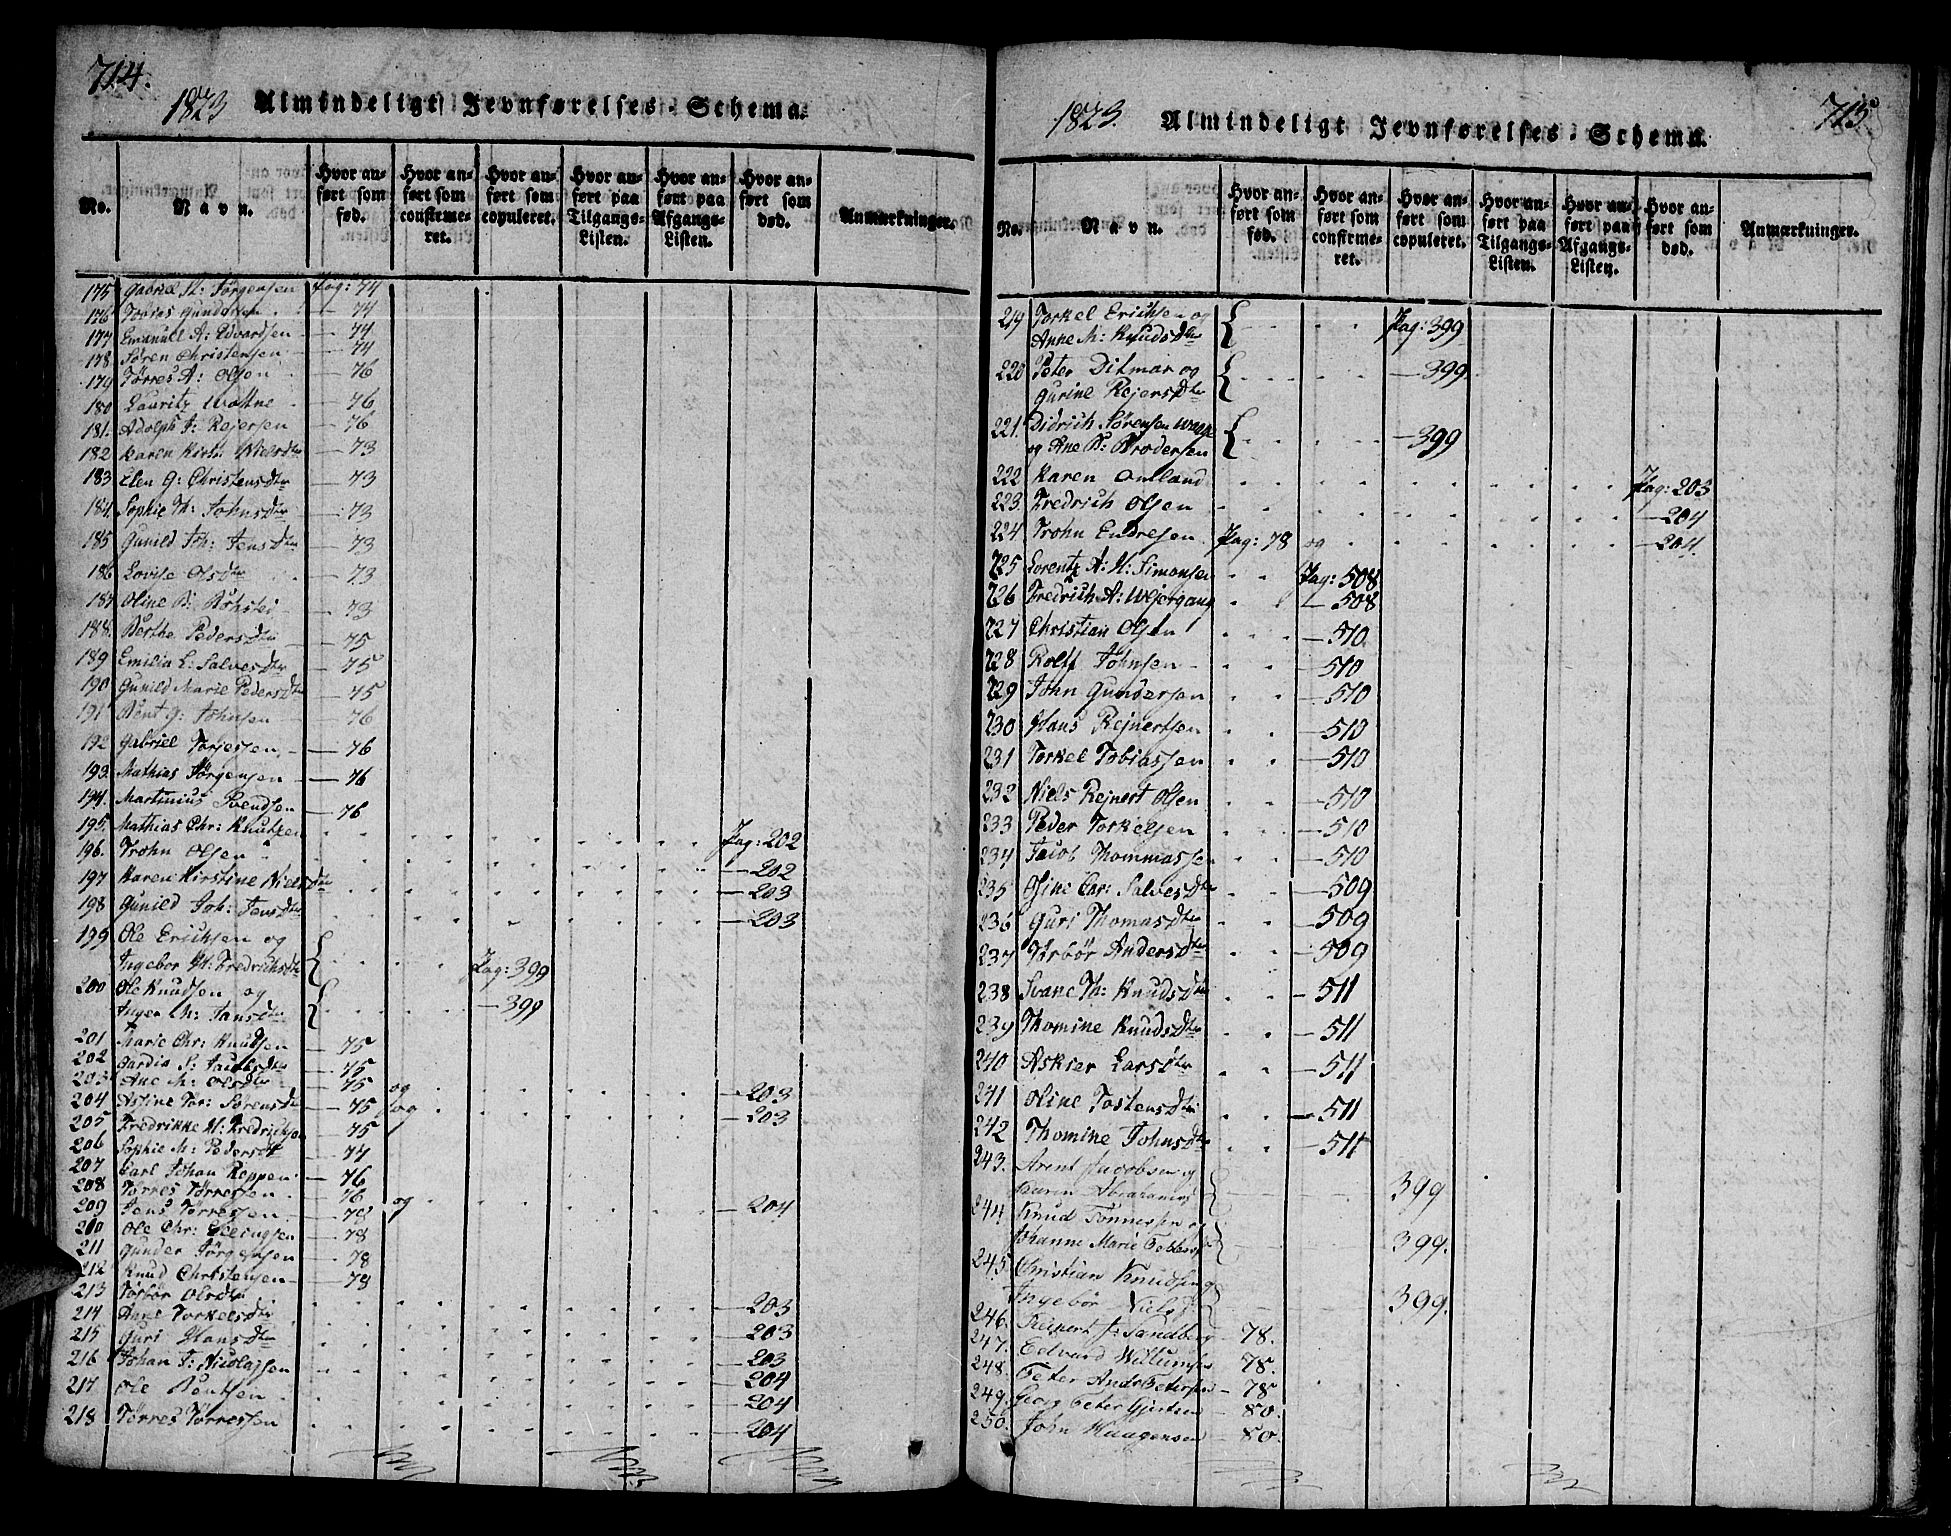 714.
1823 Almindeligt Jevnførelses-Schema.
No. Navn. Hvor anført som fød. Hvor anført som confirmeret. Hvor anført som copuleret. Hvor anført paa Tilgangs-Listen. Hvor anført paa Afgangs-Listen. Hvor anført som død. Anmærkninger.
175 Gabriel St: Jørgensen Pag: 74
176 Tobias Gundersen — 74
177 Emanuel A: Edvardsen — 74
178 Søren Christensen — 74
179 Tørres A: Olsen — 76
180 Lauritz — 76
181. Adolph J: Rejersen — 76
182 Karen Kirst: Nielsdtr — 73
183 Elen G: Christensdtr — 73
184 Sophie Th: Johnsdtr — 73
185 Gunild Joh: Jensdtr — 73
186 Lovise Olsdtr — 73
187 Oline B: — 73
188. Berthe Pedersdtr — 75
189 Emilia L: Salvesdtr — 75
190 Gunild Marie Pedersdtr — 75
191 Bent G: Johnsen — 76
192 Gabriel Torjessen — 76
193. Mathias Jørgensen — 76
194. Martinius Svendsen — 76
195. Mathias Chr: Knutzen Pag: 202
196. Trohn Olsen — 202
197 Karen Kirstine Nielsdtr — 203
198 Gunild Joh: Jensdtr — 203
199 Ole Erichsen og
Ingebor M: Fredrichsdtr Pag: 399
200 Ole Knudsen og
Inger M: Jansdtr — 399
201 Marie Chr: Knudsen — 75
202 Gardia S: Jacobsdtr — 75
203 Ane M: Olsdtr — 75 og — 203
204 Astine Tor: Sørensdtr — 75 og — 203
205 Fredrikke M: Fredrichsen — 75
206 Sophie M: Pedersdt — 77
207 Carl Johan Reppen — 76
208 Tørres Tørressen — 76 og — 204
209 Jens Tørressen — 78
210 Ole Chr: — 78
211 Gunder Jørgensen — 78
212 Knud Christensen — 78
213 Torbør Olsdtr — 203
214 Anne Torkelsdtr — 203
215 Guri Hansdtr — 203
216 Johan F: Nicolajsen — 204
217 Ole Bentsen — 204
218 Tørres Tørressen — 204
1823. Almindeligt Jevnførelses-Schema. 715
No. Navn. Hvor anført som fød. Hvor anført som confirmeret. Hvor anført som copuleret. Hvor anført paa Tilgangs-Listen. Hvor anført paa Afgangs-Listen. Hvor anført som død. Anmærkninger.
219 Torkel Erichsen og
Anne M: Knudsdtr Pag: 399
220 Peter Ditmar og
Gurine Rejersdtr — 399.
221. Didrich Sørensen
og Ane B: Brodersen — 399
222 Karen Omland Pag: 203
223. Fredrich Olsen — 204
224 Trohn Endresen Pag: 78 og — 204.
225 Lorentz A: H: Simonsen Pag: 508
226 Fredrich A: Wejergang — 508
227 Christian Olsen — 510.
228 Rolff Johnsen — 510
229 John Gundersen — 510
230 Hans Rejnertsen — 510
231 Torkel Tobiassen — 510
232 Niels Rejnert Olsen — 510
233 Peder Torkelsen — 510
234 Jacob Thommassen — 510
235 Gine Chr: Salvesdtr — 509
236 Guri Thomasdtr — 509
237 Torbør Andersdtr — 509
238 Svane Th: Knudsdtr — 511
239 Thomine Knudsdtr — 511
240 Askier Larsdtr — 511
241 Oline Tostensdtr — 511
242 Thomine Johnsdtr — 511
243. Arent Jacobsen og
Karen Abrahams 399
244 Knud Tønnessen og
Johanne Marie 399.
245. Christian Knudsen og
Ingebør Niels 399.
246. Reinert J: Sandberg — 78.
247. Edvard Willumsen — 78.
248. Peter Ands Petersen — 78
249. Georg Peter Gjertsen — 80.
250. John Haagensen — 80.